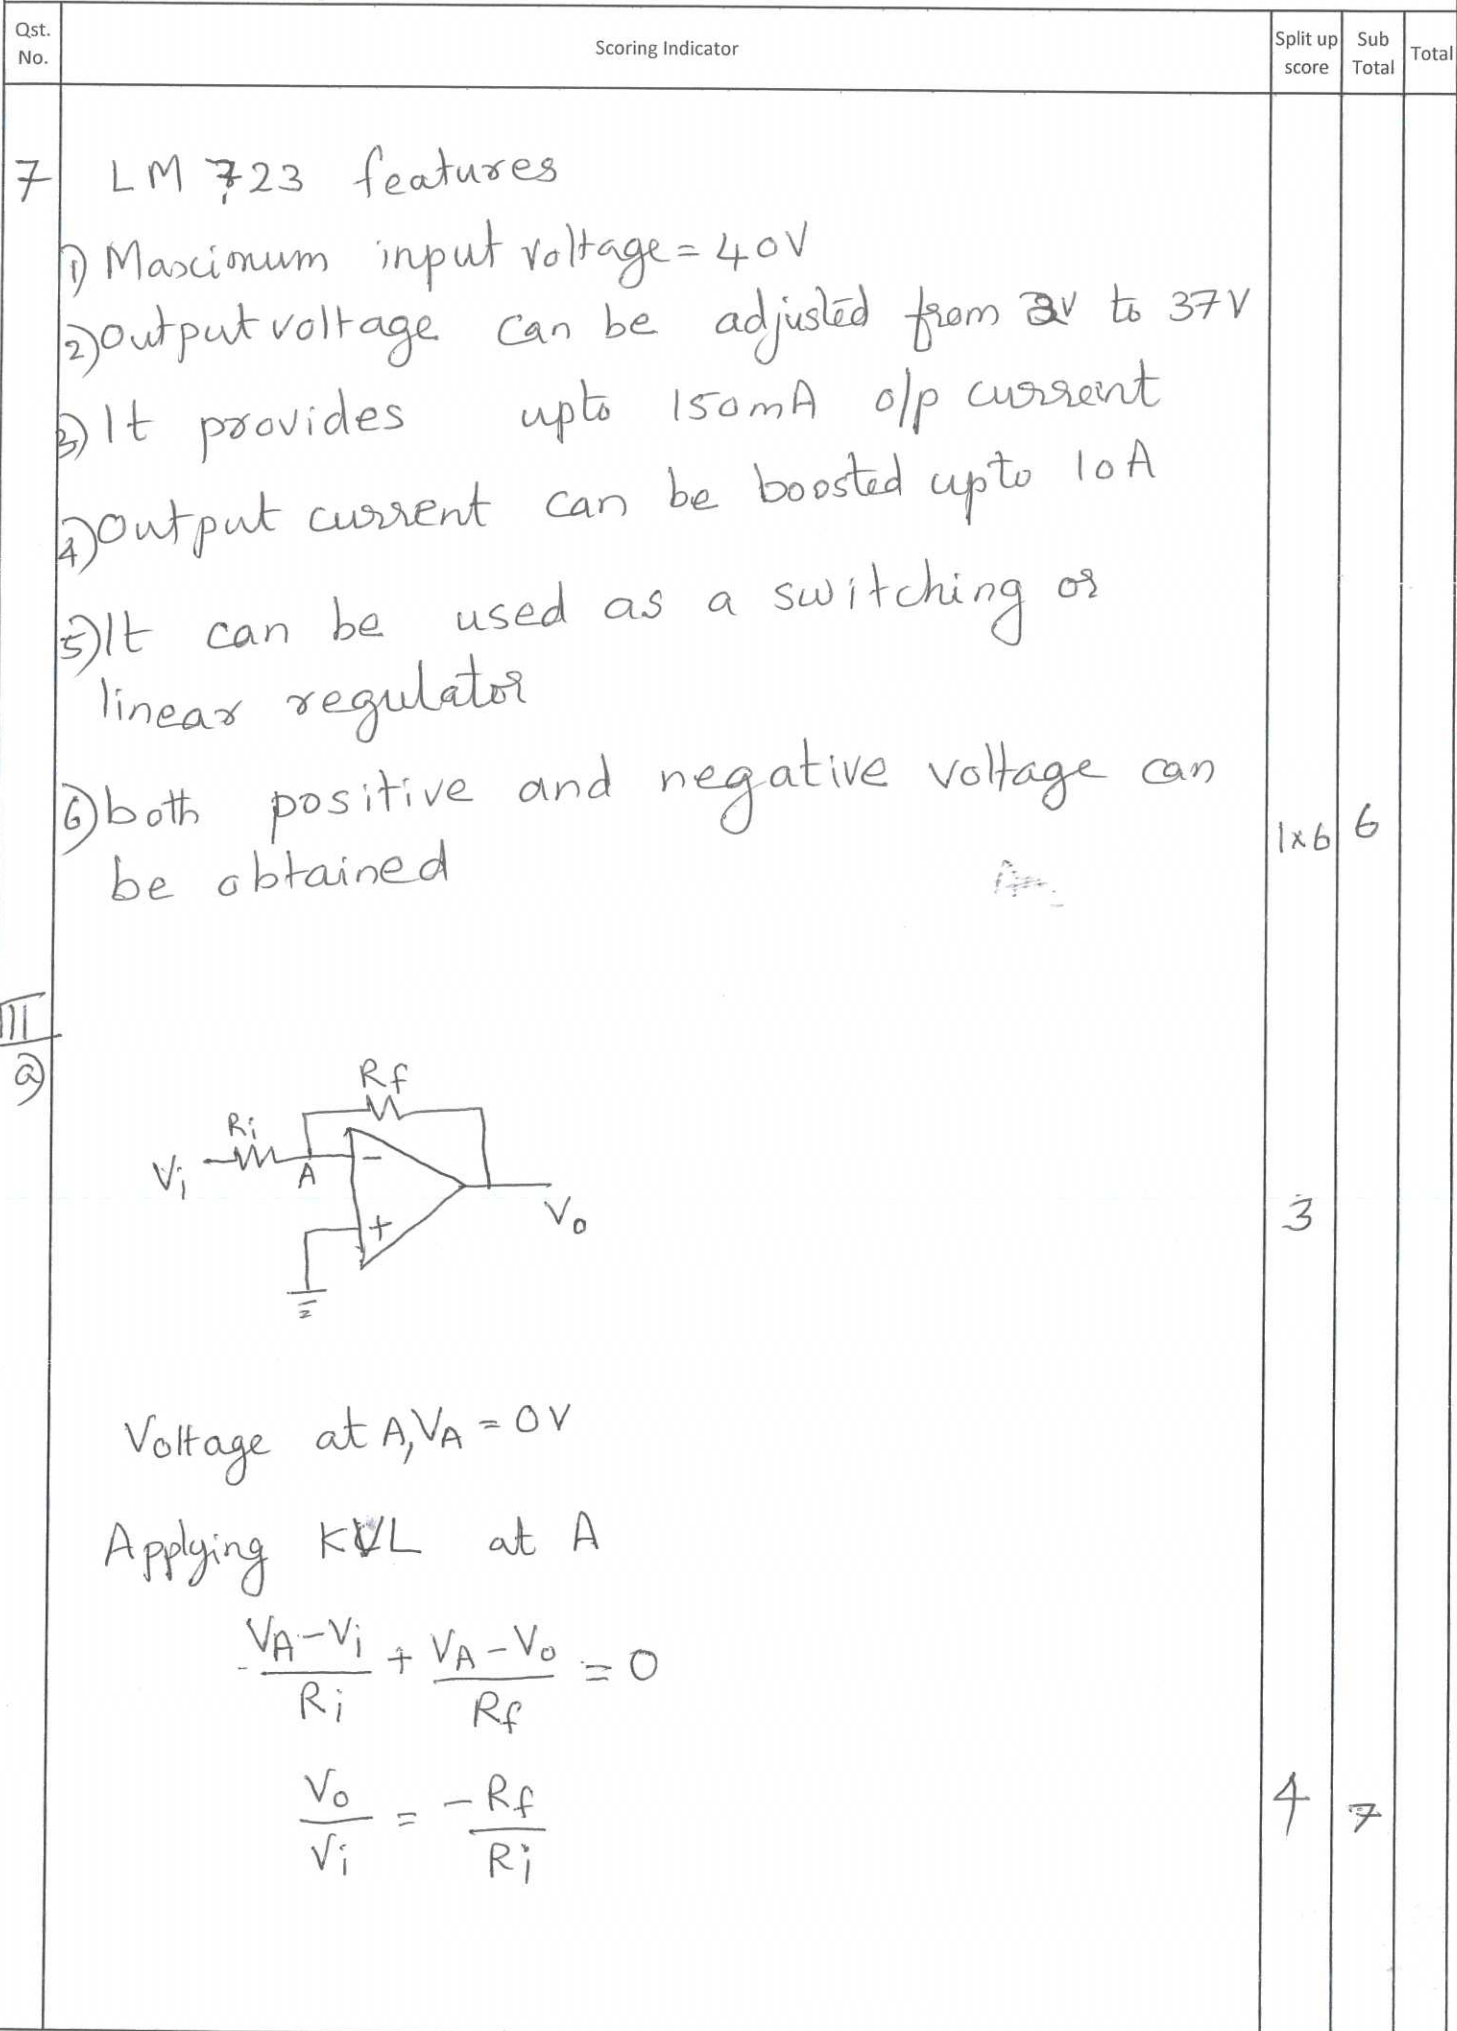 Qst. No. Scoring Indicator Split up score Sub Total Total
7 LM 723 features
1) Maximum input voltage = 40V
2) Output voltage can be adjusted from 2V to 37V
3) It provides upto 150mA o/p current
4) Output current can be boosted upto 10A
5) It can be used as a switching or
linear regulator
6) both positive and negative voltage can
be obtained 1x6 6
III
a)
Rf
Ri
Vi A −
+ Vo 3
Voltage at A, VA = 0V
Applying KVL at A
VA−Vi / Ri + VA−Vo / Rf = 0
Vo / Vi = −Rf / Ri 4 7